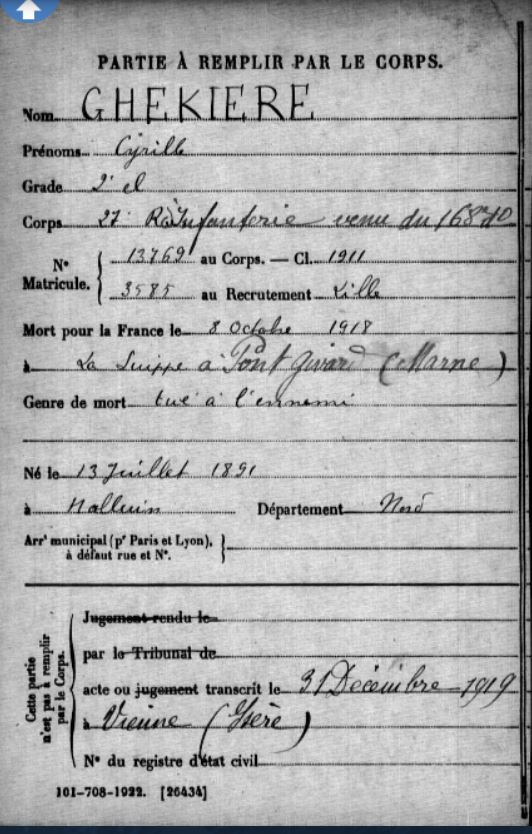 PARTIE À REMPLIR PAR LE CORPS.
Nom GHEKIERE
Prénoms Cyrille
Grade 2e cl
Corps 27e R. d'Infanterie venu du 168e d°
N° Matricule. 13769 au Corps. — Cl. 1911
3585 au Recrutement Lille
Mort pour la France le 8 Octobre 1918
à La Suippe à Pont Givard (Marne)
Genre de mort tué à l'ennemi
Né le 13 Juillet 1891
à Halluin Département Nord
Arrt municipal (pr Paris et Lyon),
à défaut rue et N°.
Cette partie n'est pas à remplir par le Corps.
Jugement rendu le
par le Tribunal de
acte ou jugement transcrit le 31 Décembre 1919
à Vienne (Isère)
N° du registre d'état civil
101-708-1922. [26434]